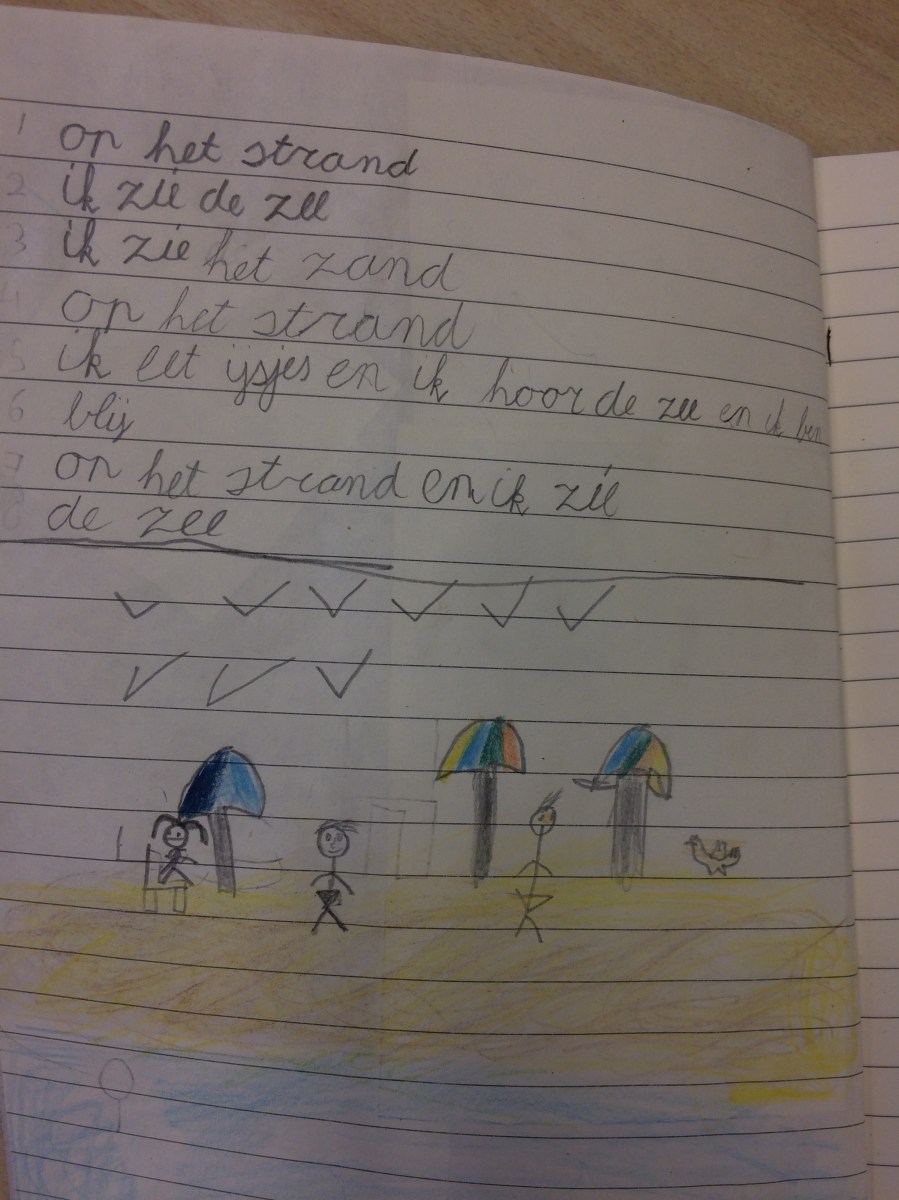 1 op het strand
2 ik zie de zee
3 ik zie het zand
4 op het strand
5 ik eet ijsjes en ik hoor de zee en ik ben
6 blij
7 op het strand en ik zie
8 de zee